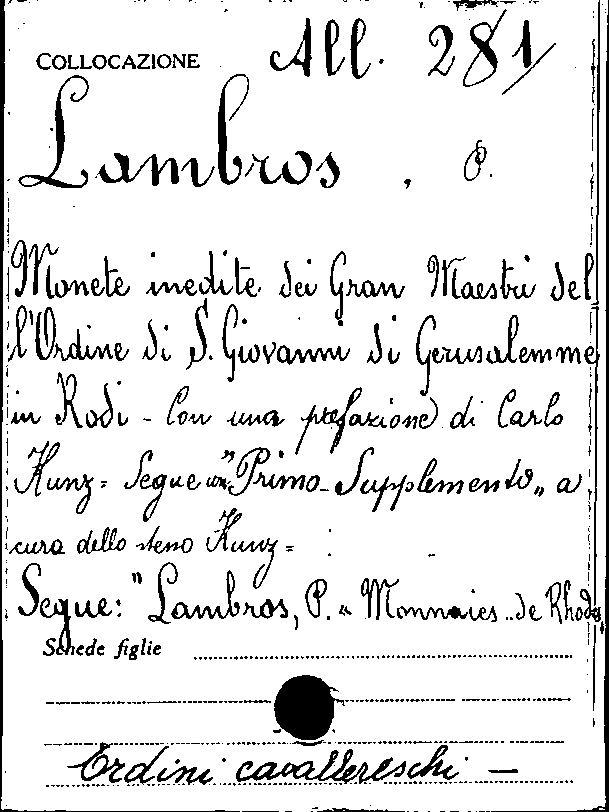 COLLOCAZIONE All. 281
Lambros, P.
Monete inedite dei Gran Maestri del
l'Ordine di S. Giovanni di Gerusalemme
in Rodi - Con una prefazione di Carlo
Kunz = Segue un "Primo Supplemento" a
cura dello stesso Kunz =
Segue: "Lambros, P. " Monnaies .. de Rhodes
Schede figlie
Ordini cavallereschi —